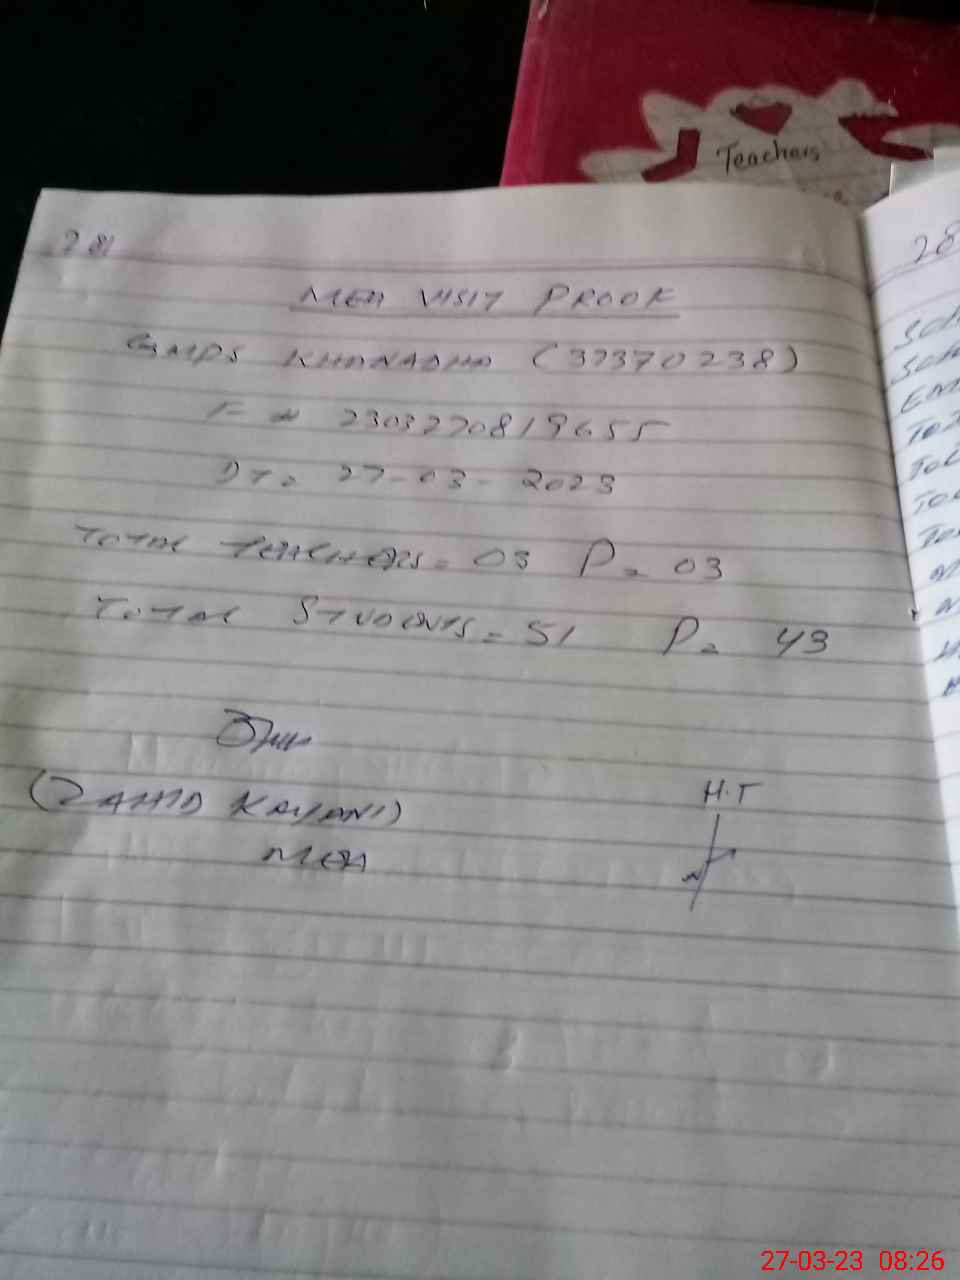 Teachers
281
MEA VISIT PROOF
GMPS KHANADHA (37370238)
F # 2303270819655
DT= 27-03-2023
TOTAL TEACHERS= 03 P= 03
TOTAL STUDENTS= 51 P= 43
(ZAHID KAYANI)
MEA
H.T
28
27-03-23 08:26